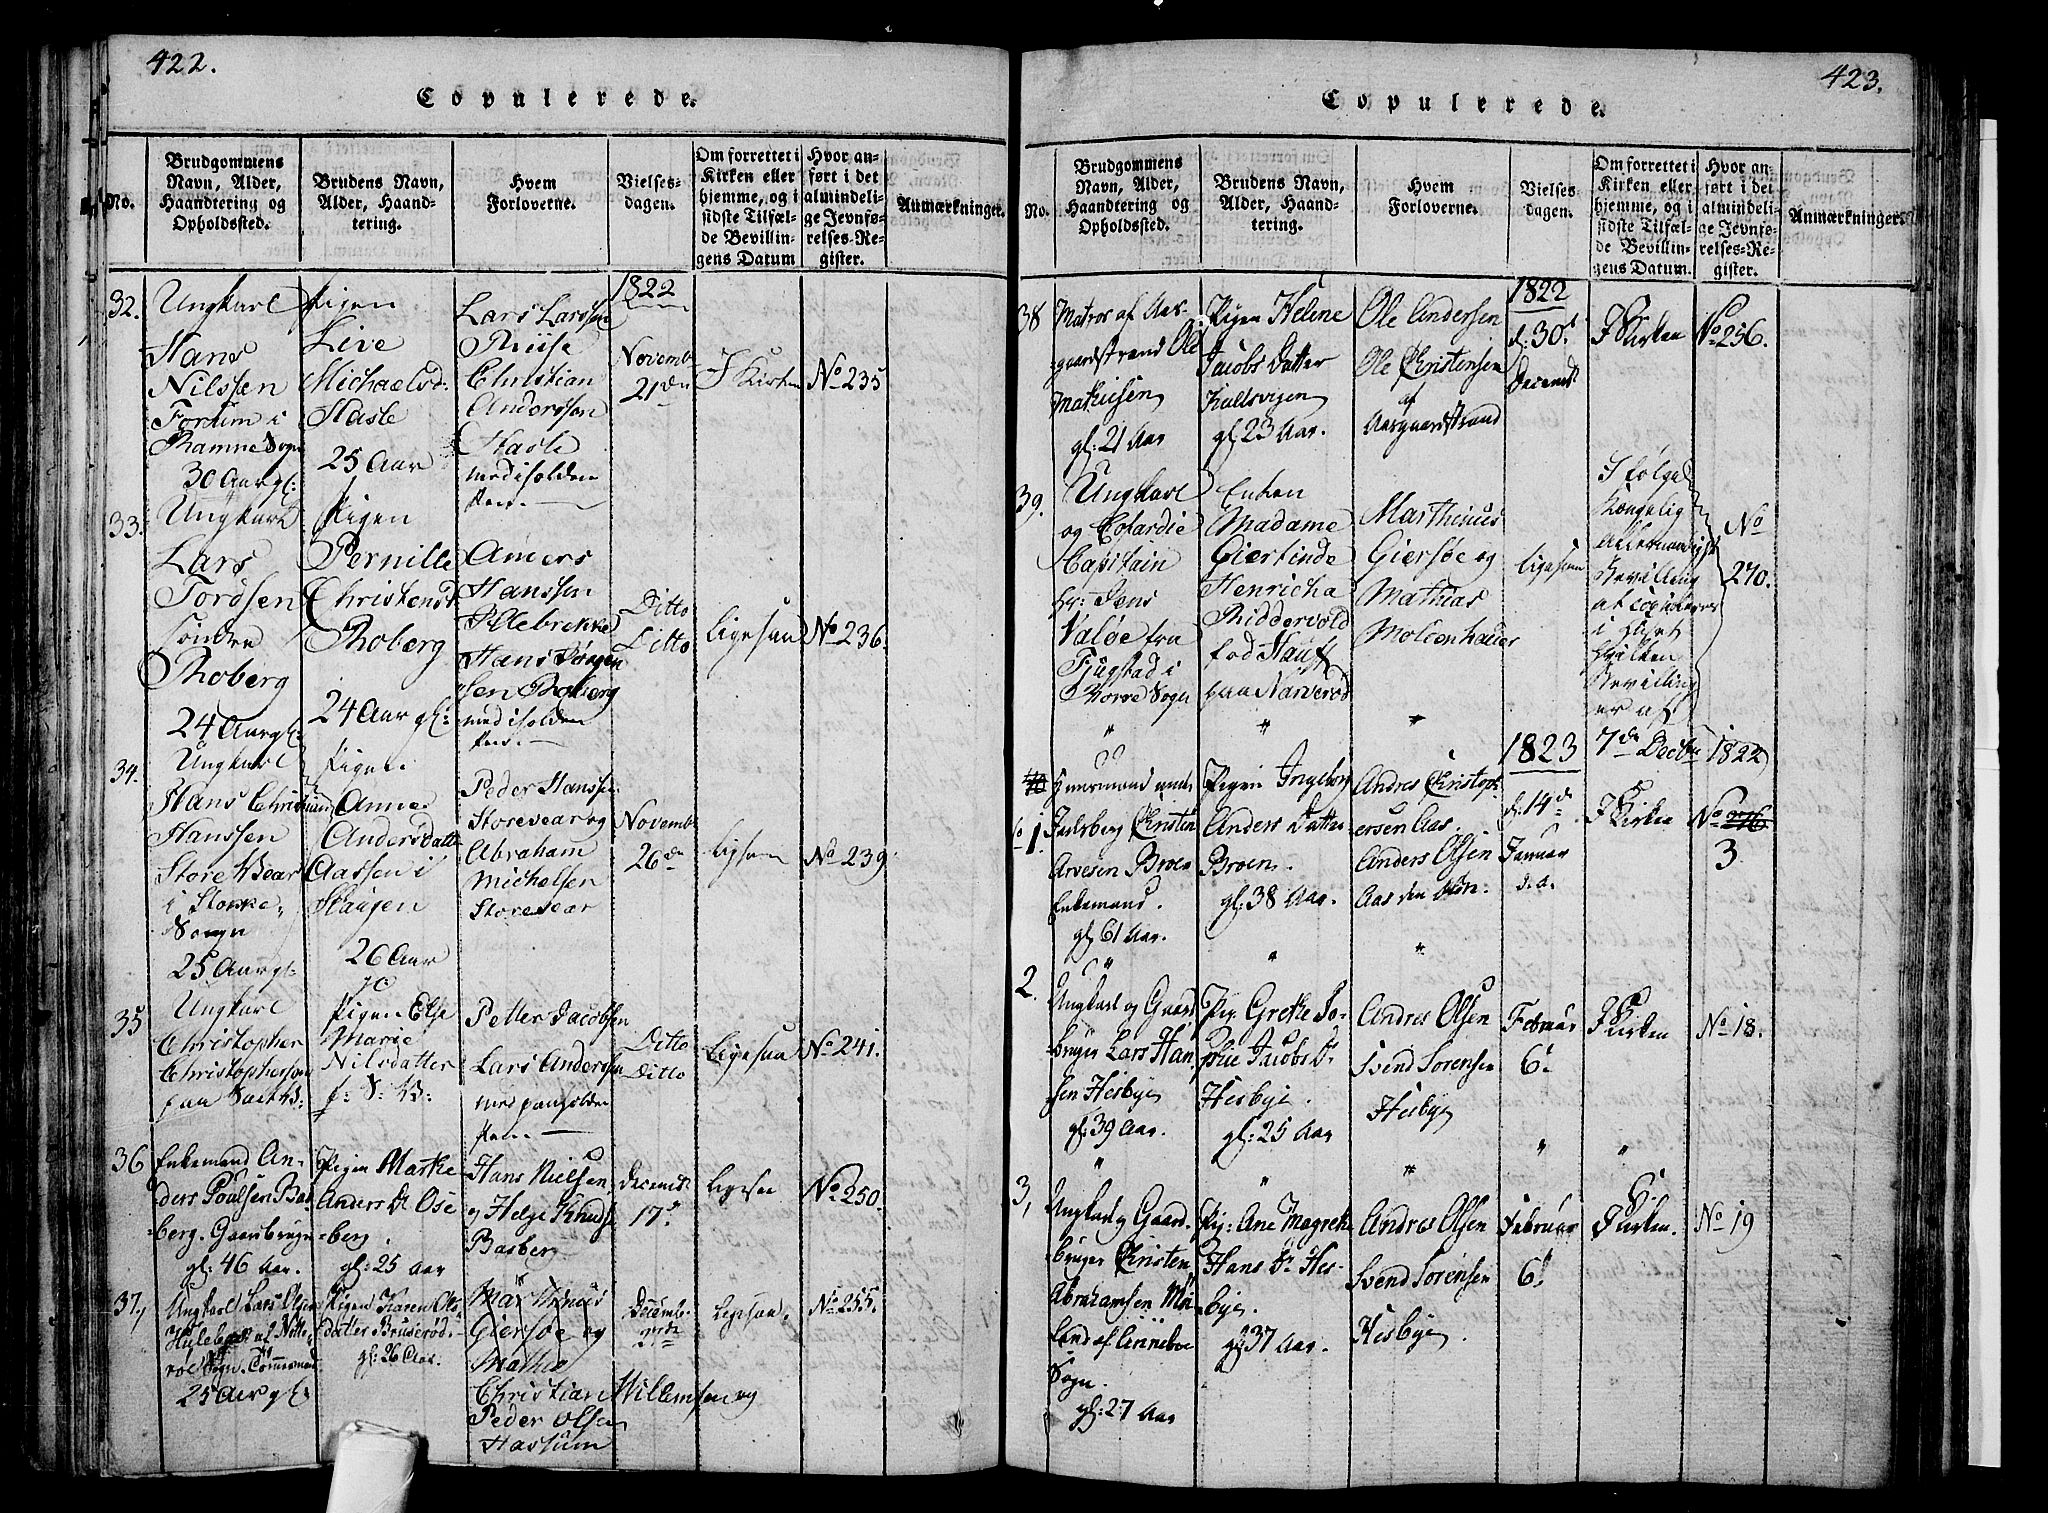 422.
Copulerede.
No.
Brudgommens
Navn, Alder,
Haandtering og
Opholdssted.
Brudens Navn,
Alder, Haand-
tering.
Hvem
Forloverne.
Vielses-
dagen.
Om forrettet i
Kirken eller
hjemme, og i
sidste Tilfæl-
de Bevillin-
gens Datum
Hvor an-
ført i det
almindeli-
ge Jevnfø-
relses-Re-
gister.
Anmærkninger.
32.
Ungkarl
Hans
Nilssen
Forum i
Ramne Sogn
30 Aar gl:
Pigen
Live
Michaelsd:
Hasle
25 Aar
Lars Larssen
Riise
Christian
Anderssen
Hasle
med iholden
1822
Novemb
21de
I Kirken
No 235
33.
Ungkarl
Lars
Tordsen
Søndre
Roberg
24 Aar gl:
Pigen
Pernille
Christensd
Roberg
24 Aar gl:
Anders
Hanssen
Illebrekke
Hans Jørgen
sen Roberg
med iholden
Ditto
Ditto
ligesaa
No 236
34.
Ungkarl
Hans Christian
Hanssen
Store Wear
i Stokke
Sogn
25 Aar gl:
Pigen
Anne
Andersdatte
Aassen i
Slaugen
26 Aar
Peder Hanssen
Storevear og
Abraham
Michelsen
Storevear
Novemb
26de
ligesaa
No 239.
35
Ungkarl
Christopher
Christophersen
paa
Pigen Else
Marie
Nilsdatter
Petter Jacobsen
Lars Andersen
Ditto
Ditto
ligesaa
No 241.
36
Enkemand An-
ders Poulsen Bas
-berg. Gaardbruger
gl: 46 Aar.
Pigen Marthe
Anders Dr Ose
-berg.
gl: 25 Aar
Hans Nielsen
og Helge Knuds
Basberg
Decembr
17d
ligesaa
No 250.
37,
Ungkarl Lars Olsen
af Nøtte-
røe Sogn.
25 Aar gl:
Pigen Karen Ols
datter Bruserød.
gl: 26 Aar.
Marthinus
Giersøe og
Mathis
Christian Willemsen og
Peder Olsen
Hassum
Decemb
27de
ligesaa.
No 255.
423.
Copulerede.
No.
Brudgommens
Navn, Alder,
Haandtering og
Opholdssted.
Brudens Navn,
Alder, Haand-
tering.
Hvem
Forloverne.
Vielses-
dagen.
Om forrettet i
Kirken eller
hjemme, og i
sidste Tilfæl-
de Bevillin-
gens Datum.
Hvor an-
ført i det
almindeli-
ge Jevnfø-
relses-Re-
gister.
Anmærkninger.
38
Matros af Aas-
gaardstrand Ole
Mathisen
gl: 21 Aar
Pigen Helene
Jacobs Datter
Kallsvigen
gl: 23 Aar.
Ole Andersen
Ole Christensen
af
Aasgaardstrand
1822
d: 30t
Decembr
I Kirken
No 256.
39.
Ungkarl
og
Capitain
Hr: Jens
Valøe fra
Fjugstad i
Borre Sogn
Enken
Madame
Giertinde
Henricha
Riddervold
fød Hauff
paa Narverød
Marthinus
Giersøe og
Mathias
Moldenhauer
ligesaa
I følge
Kongelig
Allernaadigst
Bevilling
at copuleres
i Huset
hvilken
Bevilling
er af
7de Decbr 1822
No
270.
40
No 1.
Huusmand under
Jarlsberg Christen
Arvesen Broen
Enkemand.
gl: 61 Aar.
Pigen Ingeborg
Anders Datter
Broen.
gl: 38 Aar.
Andres Christoph-
ersen Aas.
Anders Olsen
Aas den
1823
d: 14de
Januar
s. a.
I Kirken
No 276
3.
2.
Ungkarl og Gaard
-bruger Lars Han
sen Hesbye
gl: 39 Aar.
Pig. Grethe So-
phie Jacobs Dr
Hesbye.
gl: 25 Aar
Andres Olsen
Svend Sørensen
Hesbye
Februar
6t
I Kirken
No 18.
3,
Ungkarl og Gaard-
-bruger Christen
Abrahamsen Møi-
land af Linneboe
Sogn.
gl: 27 Aar
Pig: Ane Magrete
Hans Dr Hes-
bye.
gl: 37 Aar.
Andres Olsen
Svend Sørensen
Hesbye.
Februar
6t
I Kirken.
No 19